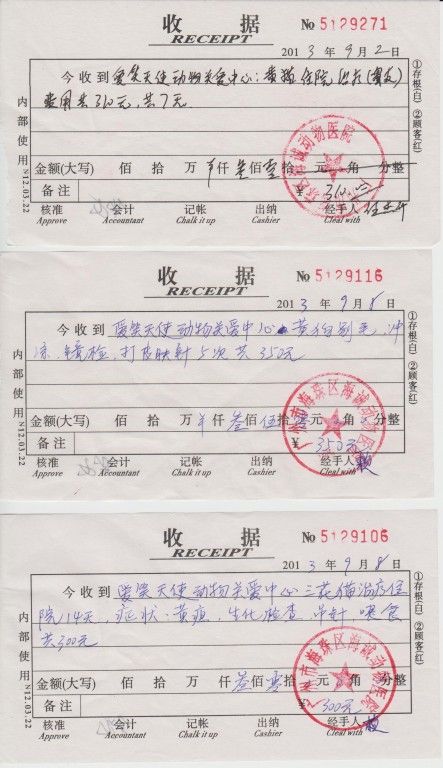 收 据
RECEIPT
№ 5129271
2013 年 9 月 2 日
今收到 爱笑天使动物关爱中心: 黄猫住院治疗
费用共310元,共7天
金额(大写) 佰 拾 万 仟 叁佰壹拾 元 角 分整
备注 310.00
核准 会计 记帐 出纳 经手人
Approve Accountant Chalk it up Cashier Cleal with
内部使用 N12.03.22
①存根(白) ②顾客(红)
收 据
RECEIPT
№ 5129116
2013 年 9 月 8 日
今收到 爱笑天使动物关爱中心 黄狗剃毛,冲
凉,镜检,打皮肤针5次 共350元
金额(大写) 佰 拾 万 仟 叁佰伍拾 元 角 分整
备注 ¥350元
核准 会计 记帐 出纳 经手人
Approve Accountant Chalk it up Cashier Cleal with
内部使用 N12.03.22
①存根(白) ②顾客(红)
广州市海珠区海诚动物医院
收 据
RECEIPT
№ 5129106
2013 年 9 月 8 日
今收到 爱笑天使动物关爱中心 三花猫治疗住
院14天,症状:黄疸,生化检查,中针 喂食
共300元
金额(大写) 佰 拾 万 仟 叁佰零拾 元 角 分整
备注 ¥300元
核准 会计 记帐 出纳 经手人
Approve Accountant Chalk it up Cashier Cleal with
内部使用 N12.03.22
①存根(白) ②顾客(红)
广州市海珠区海诚动物医院